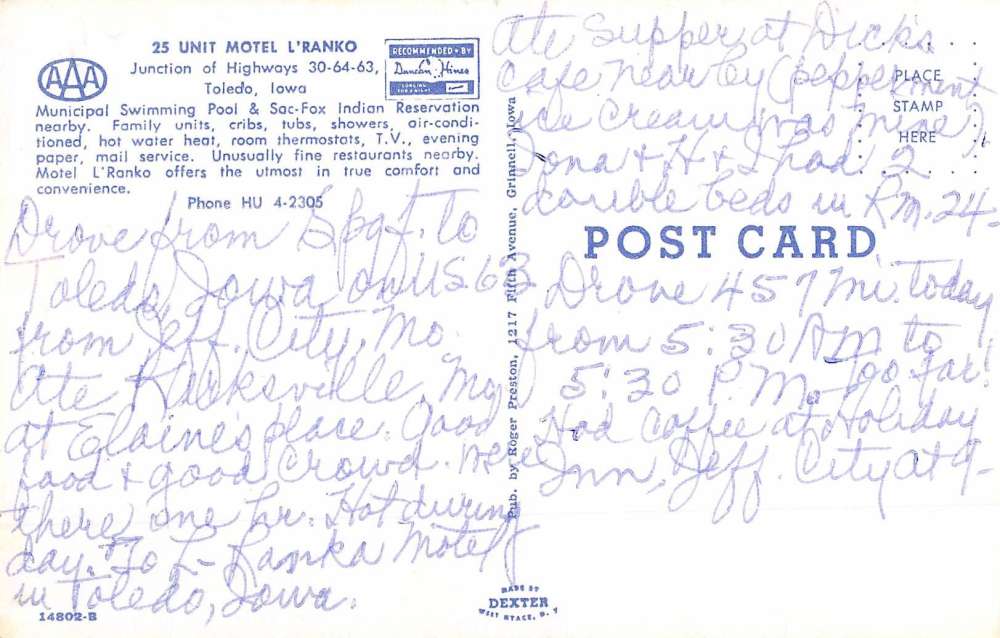 25 UNIT MOTEL L'RANKO
Junction of Highways 30-64-63,
Toledo, Iowa
AAA
RECOMMENDED BY
Duncan Hines
Municipal Swimming Pool & Sac-Fox Indian Reservation
nearby. Family units, cribs, tubs, showers, air-condi-
tioned, hot water heat, room thermostats, T.V., evening
paper, mail service. Unusually fine restaurants nearby.
Motel L'Ranko offers the utmost in true comfort and
convenience.
Phone HU 4-2305
Drove from Spgf. to
Toledo, Iowa on US 63
from Jeff. City, Mo.
Ate Kirksville, Mo
at Elaine's place. Good
food & good crowd. Were
there one hr. Hot during
day. To L-Ranka Motel
in Toledo, Iowa.
14802-B
Pub. by Roger Preston, 1217 Fifth Avenue, Grinnell, Iowa
MADE BY
DEXTER
WEST NYACK, N. Y.
PLACE
STAMP
HERE
Ate Supper at Dick's
Cafe near by (peppermint
ice cream was mine)
Iona & H & I had 2
double beds in Rm. 24-
POST CARD
Drove 457 mi. today
from 5:30 AM to
5:30 P.M. Too far!
Had coffee at Holiday
Inn, Jeff. City at 9-